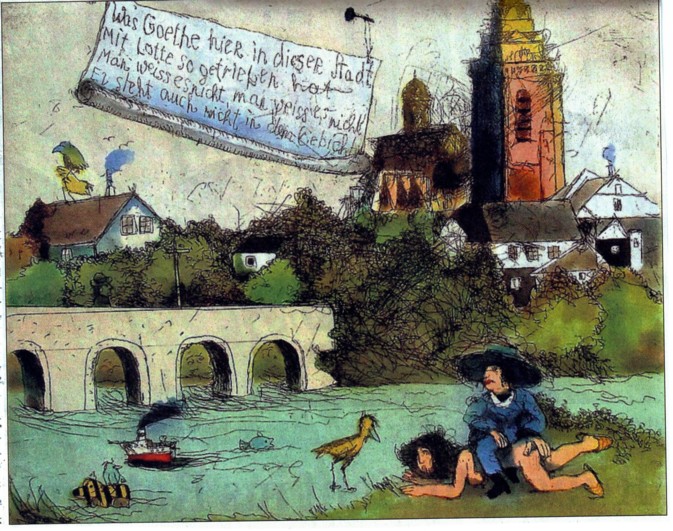 Was Goethe hier in dieser Stadt
Mit Lotte so getrieben hat
Man weiss es nicht, man weiss es nicht
Es steht auch nicht in dem